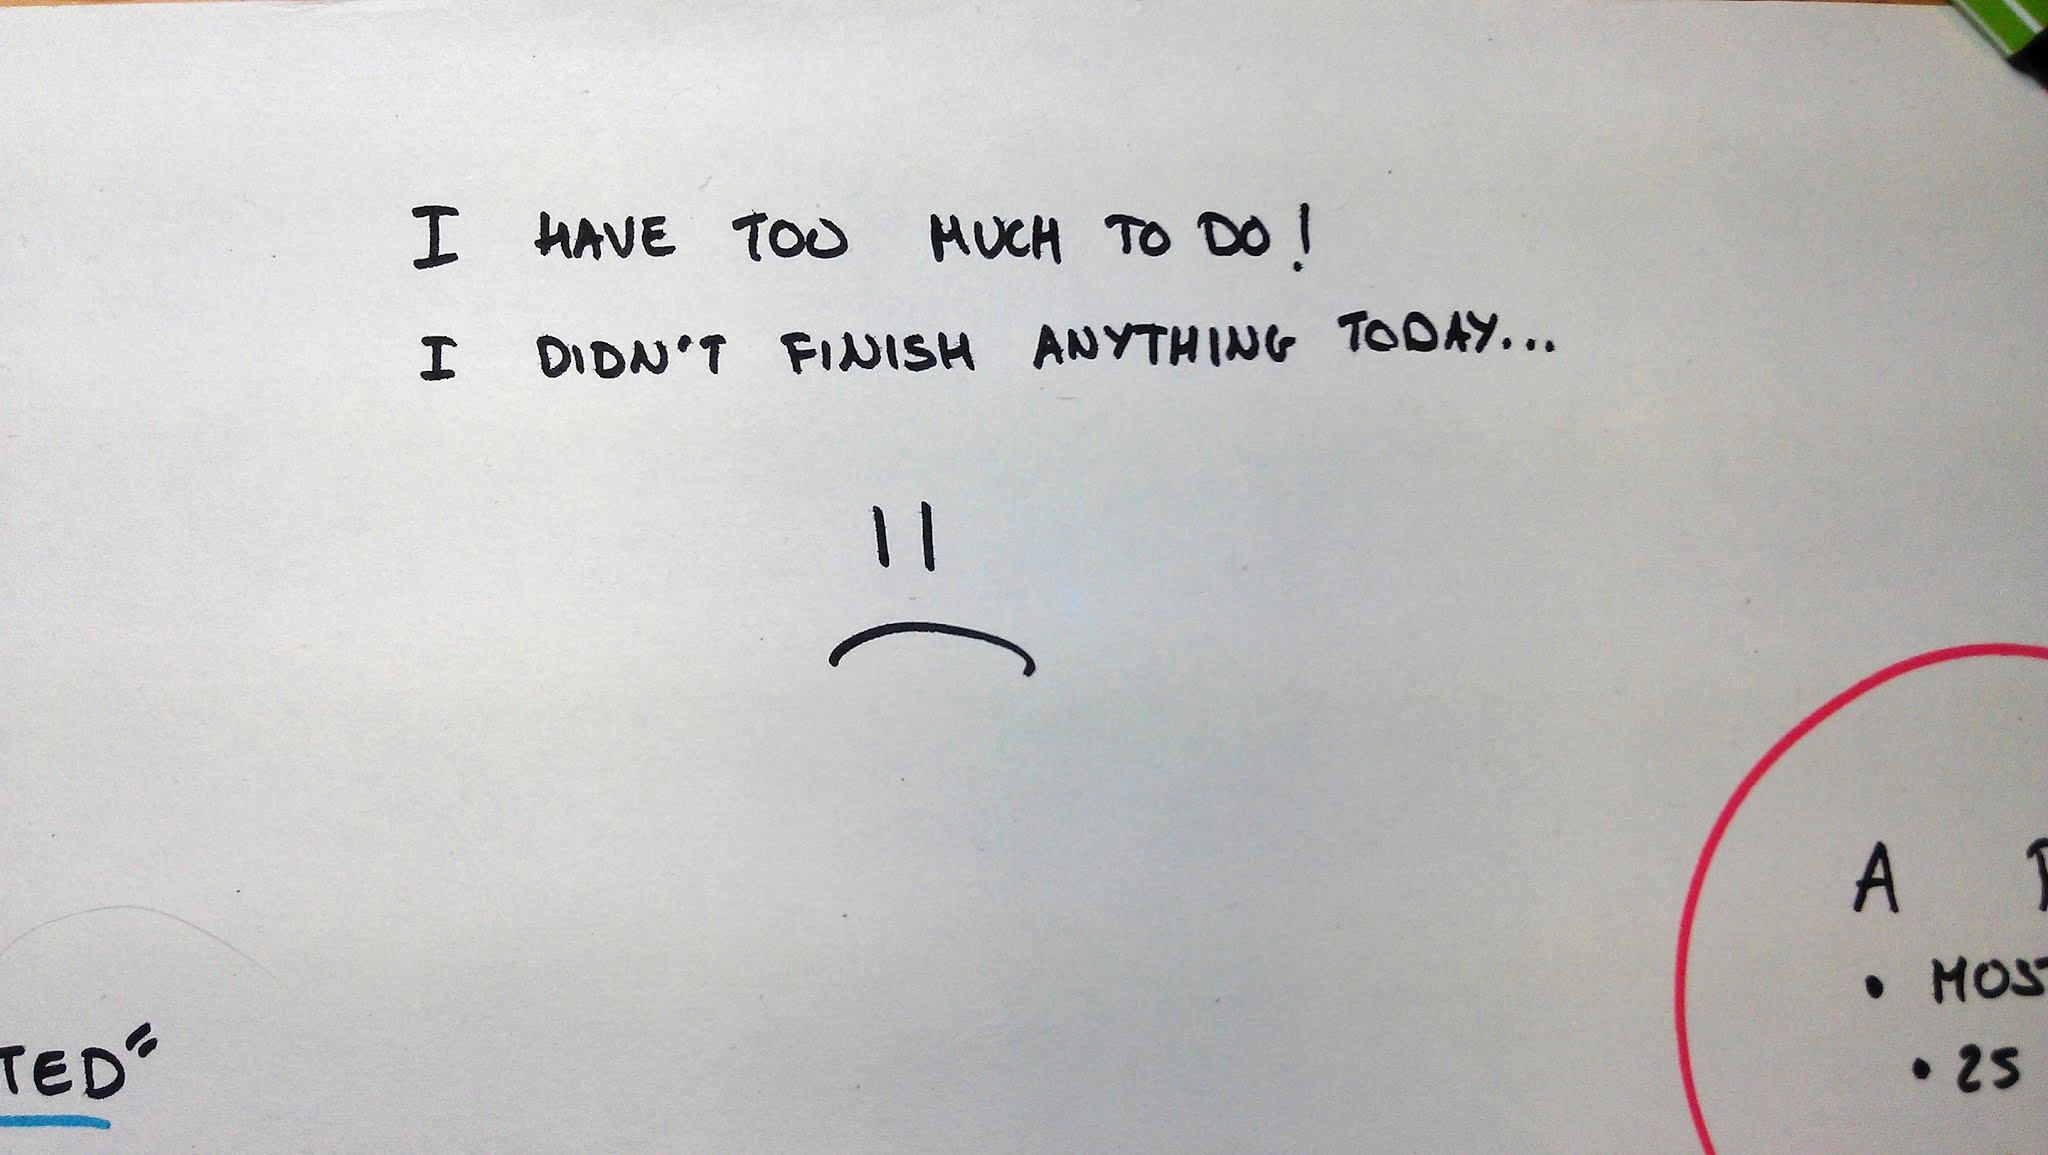 I HAVE TOO MUCH TO DO!
I DIDN'T FINISH ANYTHING TODAY...
A
• MOST
• 25
TED"